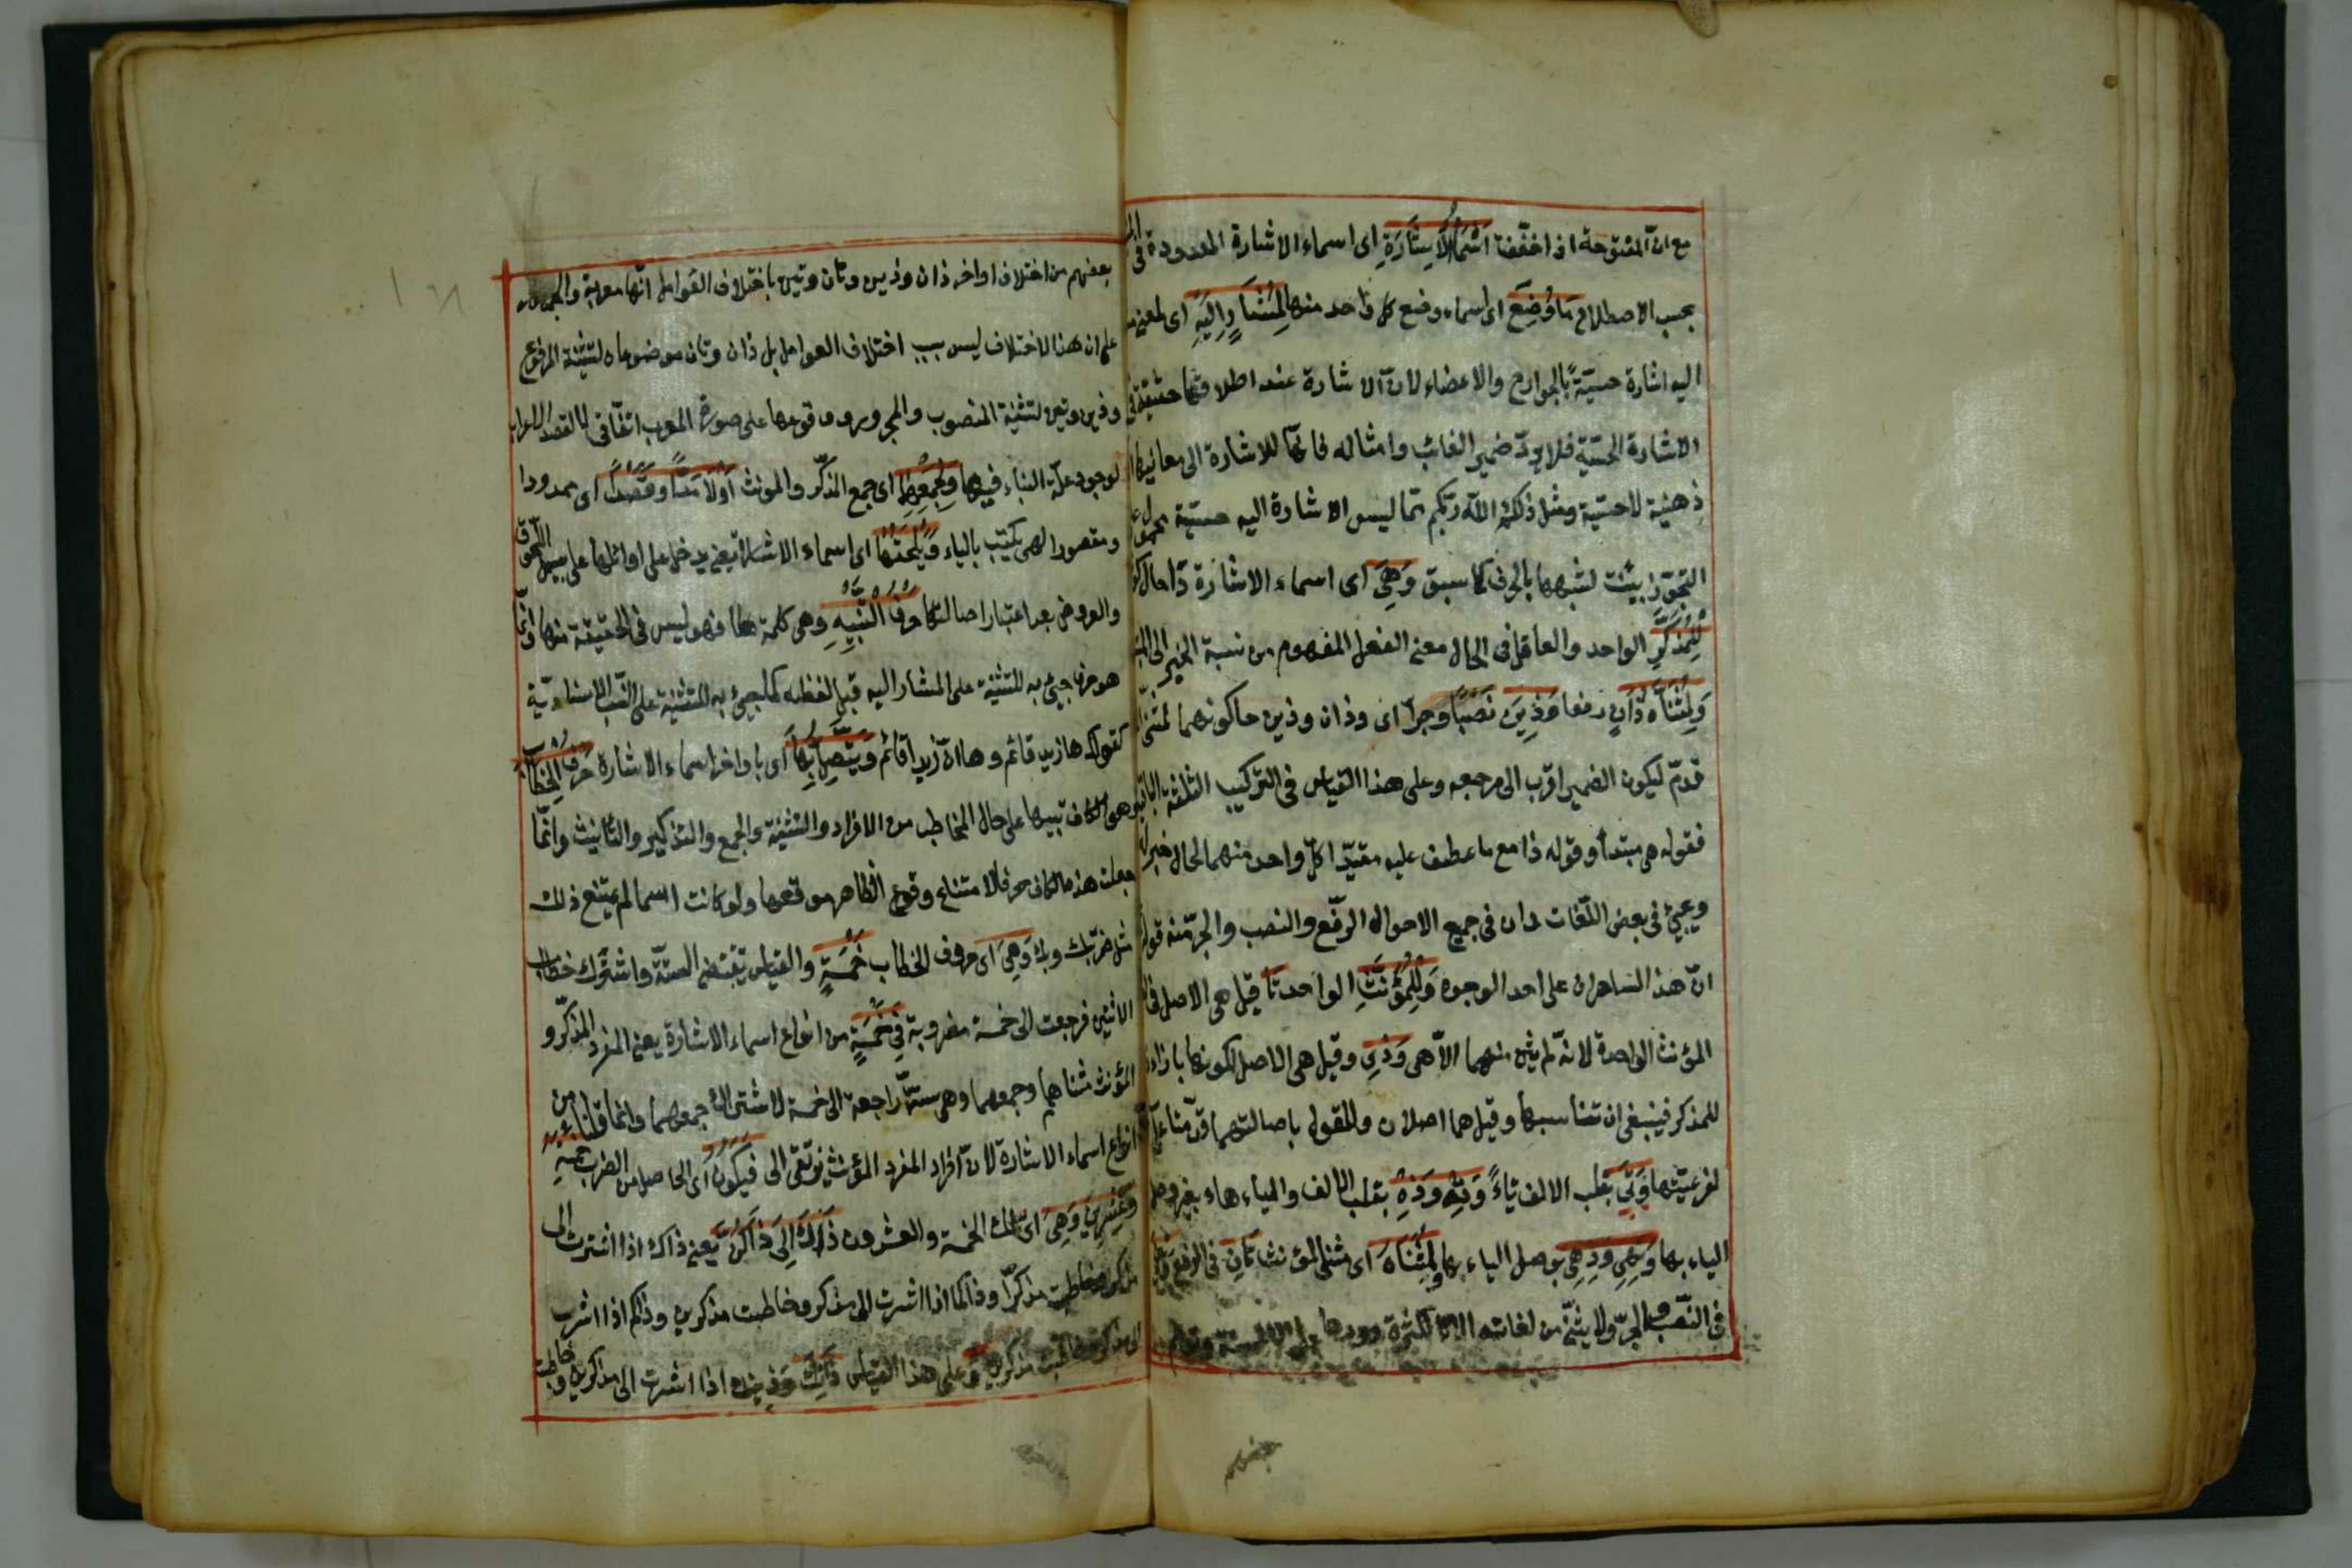 مع ان المفتوحة اذا خففت اسماء الاشارة اى اسماء الاشارة المعدودة فى
بحسب الاصطلاح ما وضع اى اسماء وضع كل واحد منها لمشار اليه اى لمعنى
اليه اشارة حسيّة بالجوارح والاعضاء لان الاشارة عند اطلاقها حقيقة فى
الاشارة الحسيّة فلا يردّ ضمير الغائب وامثاله فانها للاشارة الى معانيها
ذهنية لا حسيّة ومثل ذلكم الله ربكم مما ليس الاشارة اليه حسيّة محمول
التجوّز بنيت لشبهها بالحرف كما سبق وهى اى اسماء الاشارة ذا حال
للمذكر الواحد والعامل فى الحال معنى الفعل المفهوم من نسبة الخبر الى
ولمثناه ذان رفعا وذين نصبا وجرا اى وذان وذين حال كونهما لمثنى
قدّم ليكون الضمير اقرب الى مرجعه وعلى هذا القياس فى التركيب الثلثة
فقوله هى مبتدأ وقوله ذا مع ما عطف عليه مقيّدا كل واحد منهما لحال خبر
ويجئ فى بعض اللغات ذان فى جميع الاحوال الرفع والنصب والجر منه قوله
انّ هذان لساحران على احد الوجوه وللمؤنث الواحد تا قيل هى الاصل فى
المؤنث الواحدة لانه لم يثن منهما الا هى وذى وقيل هى الاصل لكونها بازاء
للمذكر فينبغى ان تناسبها وقيل هما اصلان وللقول باصالتهما
لفرعيّتها وتى بقلب الالف ياءً وته وذه بقلب الالف والياء هاء بغير وصل
الياء بها وتهى وذهى بوصل الياء بها ولمثناه اى مثنى المؤنث تان فى الرفع
فى النصب والجرّ ولا يثنّى من لغاته الا تا لكثرة ورودها على الالسنة
بعضهم من اختلاف اواخر ذان وذين وتان وتين باختلاف العوامل انها معربة والجمهور
على ان هذا الاختلاف ليس بسبب اختلاف العوامل بل ذان وتان موضوعان لتثنية المرفوع
وذين وتين لتثنية المنصوب والمجرور ووقوعها على صورة المعرب اتفاقى لا لقصد الاعراب
لوجود علّة البناء فيها ولجمعهما اى جمع المذكّر والمونث اولاء مدّا وقصرا اى ممدودا
ومقصورا وهى يكتب بالياء ويلحقها اى اسماء الاشارة يعنى يدخل على اوائلها على سبيل اللحوق
والعروض بعد اعتبار اصالتها حرف التنبيه وهى كلمة ها فهو ليس فى الحقيقة منها وانما
هو حرف جيئ به للتنبيه على المشار اليه قبل لفظه كما جيئ به للتنبيه على النسب الاسنادية
كقولك ها زيد قائم وها ان زيدا قائم ويتصل بها اى باواخر اسماء الاشارة حرف الخطاب
وهى الكاف تنبيها على حال المخاطب من الافراد والتثنية والجمع والتذكير والتأنيث وانما
جعلت هذه الكاف حرفا لامتناع وقوع الظاهر موقعها ولو كانت اسما لم يمتنع ذلك
مثل ضربك وبك وهى اى حروف الخطاب خمسة والقياس يقتضى الستة واشترك خطاب
الاثنين فرجعت الى خمسة مضروبة فى خمسة من انواع اسماء الاشارة يعنى المفرد المذكر و
المؤنث مثناهما وجمعهما وهى ستة راجعة الى خمسة لاشتراك جمعهما وانما قلنا من
انواع اسماء الاشارة لان افراد المفرد المؤنث يرتقى الى فيكون اى الحاصل من الضرب خمسة
وعشرين وهى اى تلك الخمسة والعشرون ذاك الى ذاكن يعنى ذاك اذا اشرت الى
مذكر وخاطبت مذكرّا وذاكما اذا اشرت الى مذكر وخاطبت مذكرين وذاكم اذا اشرت
الى مذكر وخاطبت مذكرين وعلى هذا القياس ذانك وذينك اذا اشرت الى مذكرين وخاطبت